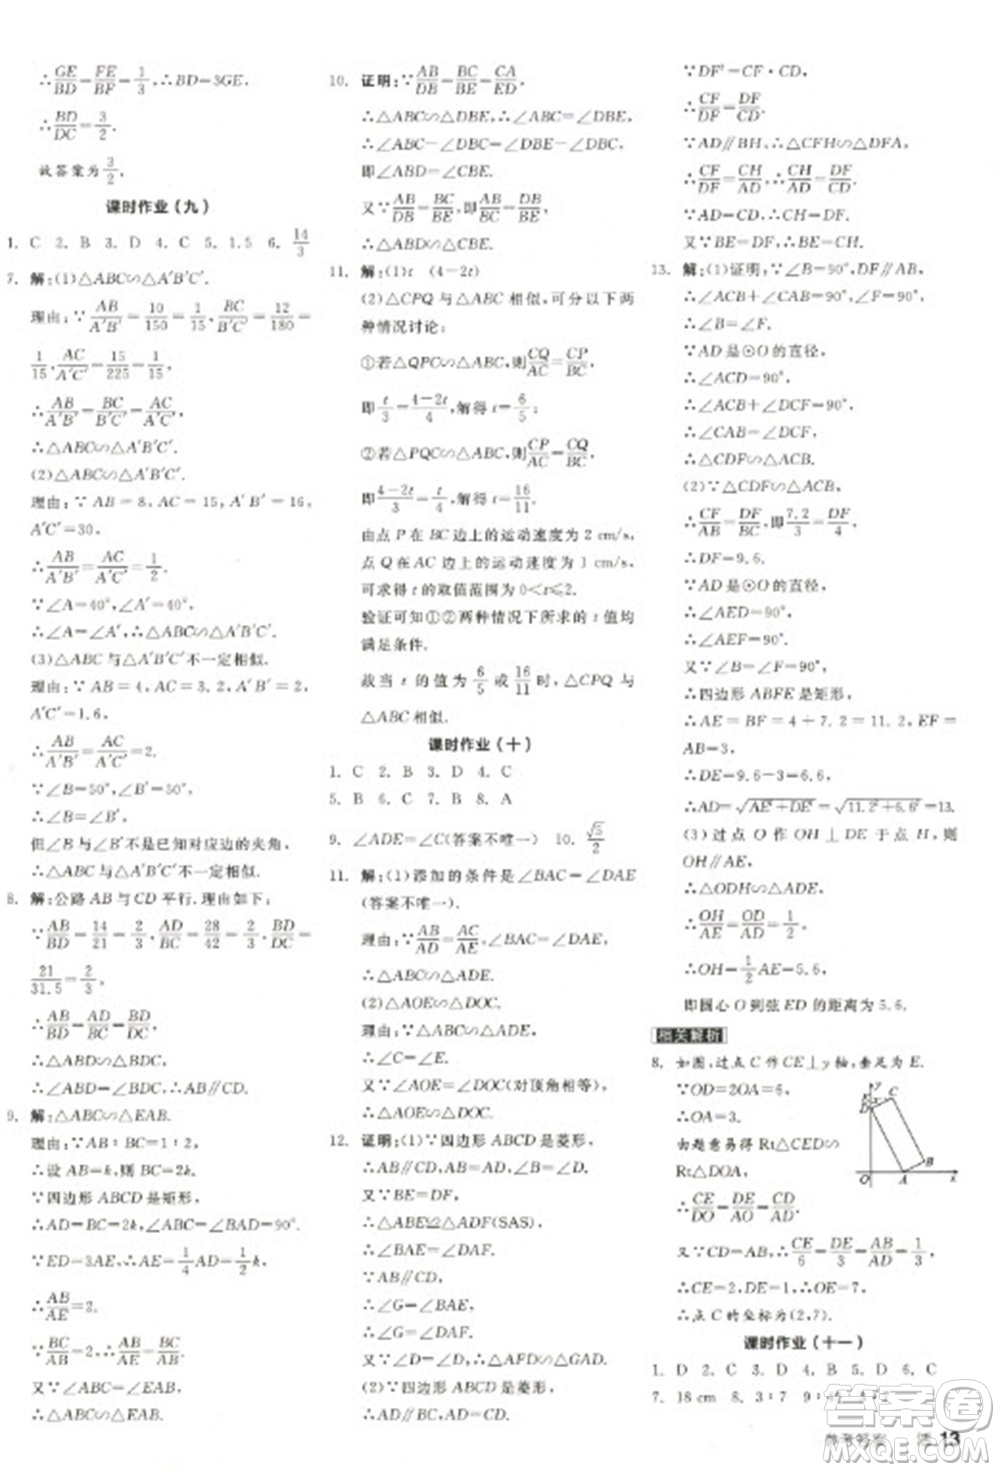 ∴GE/BD=FE/BF=1/3,∴BD=3GE.
∴BD/DC=3/2.
故答案为3/2.
课时作业(九)
1. C 2. B 3. D 4. C 5. 1.5 6. 14/3
7. 解:(1)△ABC∽△A′B′C′.
理由:∵AB/A′B′=10/150=1/15,BC/B′C′=12/180=
1/15,AC/A′C′=15/225=1/15,
∴AB/A′B′=BC/B′C′=AC/A′C′,
∴△ABC∽△A′B′C′.
(2)△ABC∽△A′B′C′.
理由:∵AB=8,AC=15,A′B′=16,
A′C′=30,
∴AB/A′B′=AC/A′C′=1/2.
∵∠A=40°,∠A′=40°,
∴∠A=∠A′,∴△ABC∽△A′B′C′.
(3)△ABC与△A′B′C′不一定相似.
理由:∵AB=4,AC=3.2,A′B′=2,
A′C′=1.6,
∴AB/A′B′=AC/A′C′=2.
∵∠B=50°,∠B′=50°,
∴∠B=∠B′,
但∠B与∠B′不是对应边的夹角,
∴△ABC与△A′B′C′不一定相似.
8. 解:公路AB与CD平行.理由如下:
∵AB/BD=14/21=2/3,AD/BC=28/42=2/3,BD/DC=
21/31.5=2/3,
∴AB/BD=AD/BC=BD/DC,
∴△ABD∽△BDC,
∴∠ABD=∠BDC,∴AB∥DC.
9. 解:△ABC∽△EAB.
理由:∵AB∶BC=1∶2,
∴设AB=k,则BC=2k.
∵四边形ABCD是矩形,
∴AD=BC=2k,∠ABC=∠BAD=90°.
∵ED=3AE,∴AE=1/4AD=1/2k,
∴AB/AE=2.
∵BC/AB=2,∴BC/AB=AB/AE.
又∵∠ABC=∠EAB,
∴△ABC∽△EAB.
10. 证明:∵AB/DB=BC/BE=CA/ED,
∴△ABC∽△DBE,∴∠ABC=∠DBE,
∴∠ABC-∠DBC=∠DBE-∠DBC,
即∠ABD=∠CBE.
又∵AB/DB=BC/BE,即AB/BC=DB/BE,
∴△ABD∽△CBE.
11. 解:(1)t (4-2t)
(2)△CPQ与△ABC相似,可分以下两
种情况讨论:
①若△QPC∽△ABC,则CQ/AC=CP/BC,
即t/3=4-2t/4,解得t=6/5;
②若△PQC∽△ABC,则CP/AC=CQ/BC,
即4-2t/3=t/4,解得t=16/11.
由点P在BC边上的运动速度为2 cm/s,
点Q在AC边上的运动速度为1 cm/s,
可求得t的取值范围为0<t≤2.
验证可知①②两种情况下所求的t均
满足条件.
故当t的值为6/5或16/11时,△CPQ与
△ABC相似.
课时作业(十)
1. C 2. B 3. D 4. C
5. B 6. C 7. B 8. A
9. ∠ADE=∠C(答案不唯一) 10. √5/2
11. 解:(1)添加的条件是∠BAC=∠DAE
(答案不唯一).
理由:∵AB/AD=AC/AE,∠BAC=∠DAE,
∴△ABC∽△ADE.
(2)△AOE∽△DOC.
理由:∵△ABC∽△ADE,∴∠C=∠E.
又∵∠AOE=∠DOC(对顶角相等),
∴△AOE∽△DOC.
12. 证明:(1)∵四边形ABCD是菱形,
∴AB=AD,∠B=∠D.
又∵BE=DF,
∴△ABE≌△ADF(SAS),
∴∠BAE=∠DAF.
∵AB∥CD,
∴∠G=∠BAE,
∴∠G=∠DAF.
又∵∠D=∠D,∴△ADF∽△GDA.
(2)∵四边形ABCD是菱形,
∴AD=CD.
∵DF²=CF·CD,
∴CF/DF=DF/CD,
∴CF/DF=DF/AD.
∵AD∥BH,∴△CFH∽△DFA,
∴CF/DF=CH/AD,∴CH/AD=DF/AD,
又∵AD=AD,∴CH=DF.
又∵BE=DF,∴BE=CH.
13. 解:(1)证明:∵∠B=90°,DF∥AB,
∴∠ACB+∠CAB=90°,
∴∠B=∠F.
∵AD是⊙O的直径,
∴∠ACD=90°,
∴∠ACB+∠DCF=90°,
∴∠CAB=∠DCF,
∴△CDF∽△ACB.
(2)∵△CDF∽△ACB,
∴CF/AB=DF/BC,即7.2/3=DF/4,
∴DF=9.6.
∵AD是⊙O的直径,
∴∠AED=90°,
∴∠AEF=90°.
又∵∠B=∠F=90°,
∴四边形ABFE是矩形,
∴AE=BF=4+7.2=11.2,EF=
AB=3,
∴DE=9.6-3=6.6,
∴AD=√AE²+DE²=√11.2²+6.6²=13.
(3)过点O作OH⊥DE于点H,则
OH∥AE,
∴△ODH∽△ADE,
∴OH/AE=OD/AD=1/2,
∴OH=1/2AE=5.6,
即圆心O到弦ED的距离为5.6.
相关解析
8. 如图,过点C作CE⊥y轴,垂足为E.
∵OD=2OA=6,
∴OA=3.
由题意易得Rt△CED∽
Rt△DOA,
∴CE/DO=DE/AO=CD/AD.
又∵CD/AD=1/3,∴CE/6=DE/3=1/3,
∴CE=2,DE=1,∴OE=7,
∴点C的坐标为(2,7).
y
E
C
D
B
O
A
x
课时作业(十一)
1. D 2. C 3. D 4. B 5. D 6. C
7. 18 cm 8. 3∶7
答案卷
参考答案 13